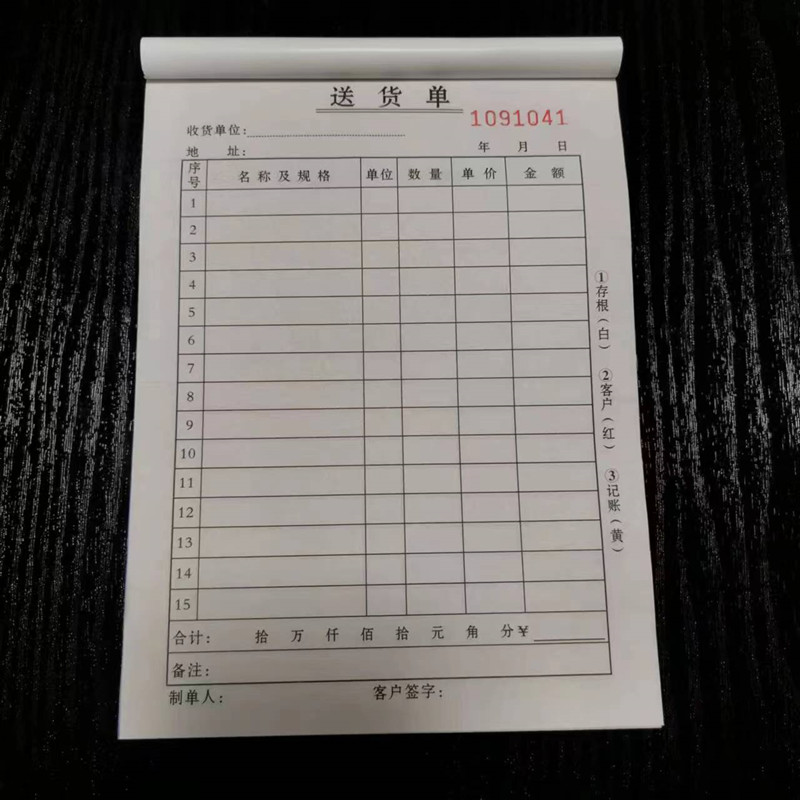 送货单
1091041
收货单位:
地 址: 年 月 日
序号 名称及规格 单位 数量 单价 金额
1
2
3
4
5
6
7
8
9
10
11
12
13
14
15
合计: 拾 万 仟 佰 拾 元 角 分¥
备注:
制单人: 客户签字:
①存根(白) ②客户(红) ③记账(黄)